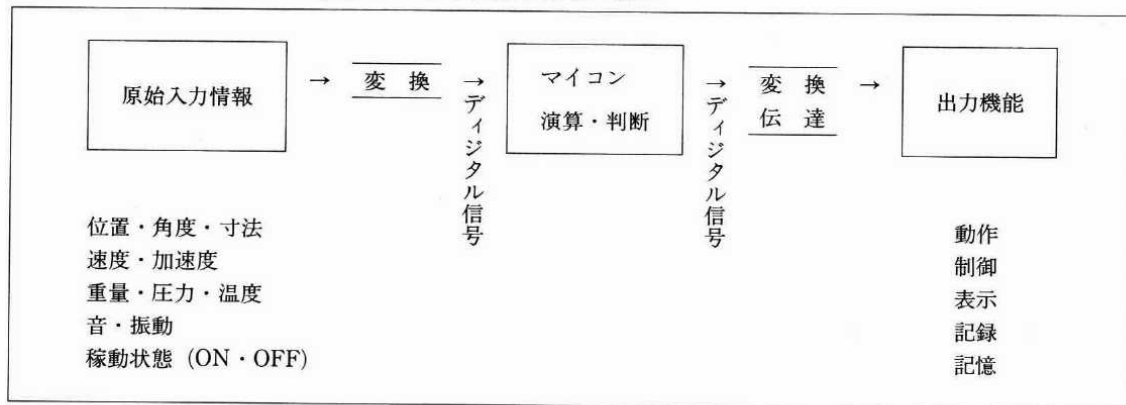 原始入力情報
→
変換
→
ディジタル信号
マイコン
演算・判断
→
ディジタル信号
変換
伝達
→
出力機能
位置・角度・寸法
速度・加速度
重量・圧力・温度
音・振動
稼動状態 (ON・OFF)
動作
制御
表示
記録
記憶